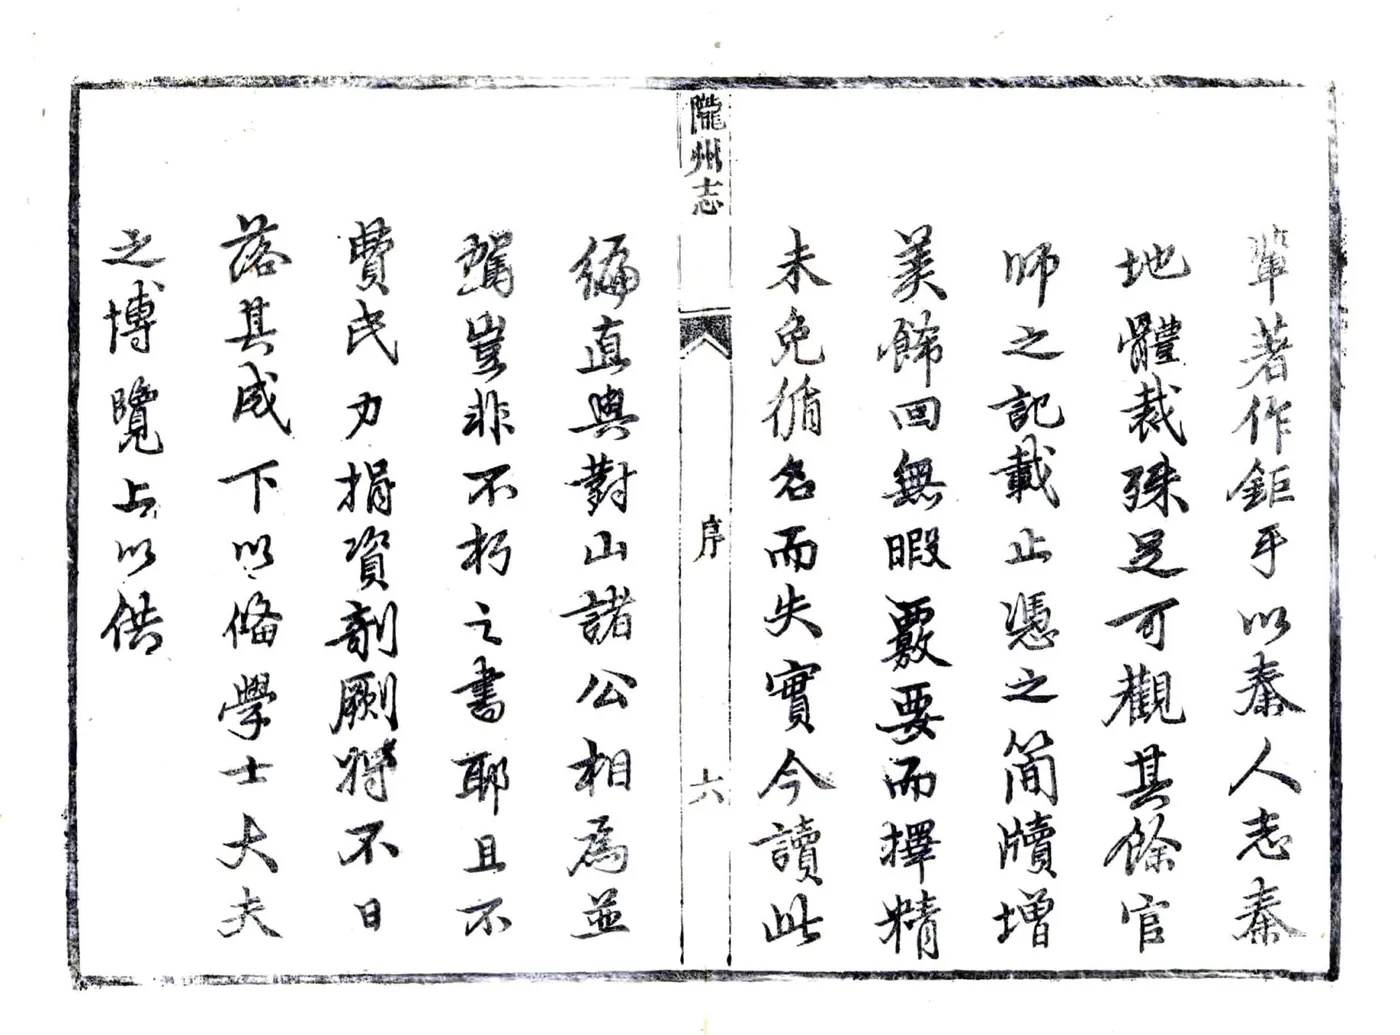 輩著作鉅手以秦人志秦
地體裁殊足可觀其餘官
師之記載止憑之簡牘增
美飾回無暇覈要而擇精
未免循名而失實今讀此
隴州志
序
六
編直與對山諸公相爲並
駕豈非不朽之書耶且不
費民力捐資剞劂將不日
落其成下以備學士大夫
之博覽上以供